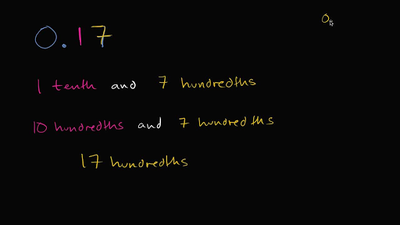 0.17
0.
1 tenth and 7 hundredths
10 hundredths and 7 hundredths
17 hundredths